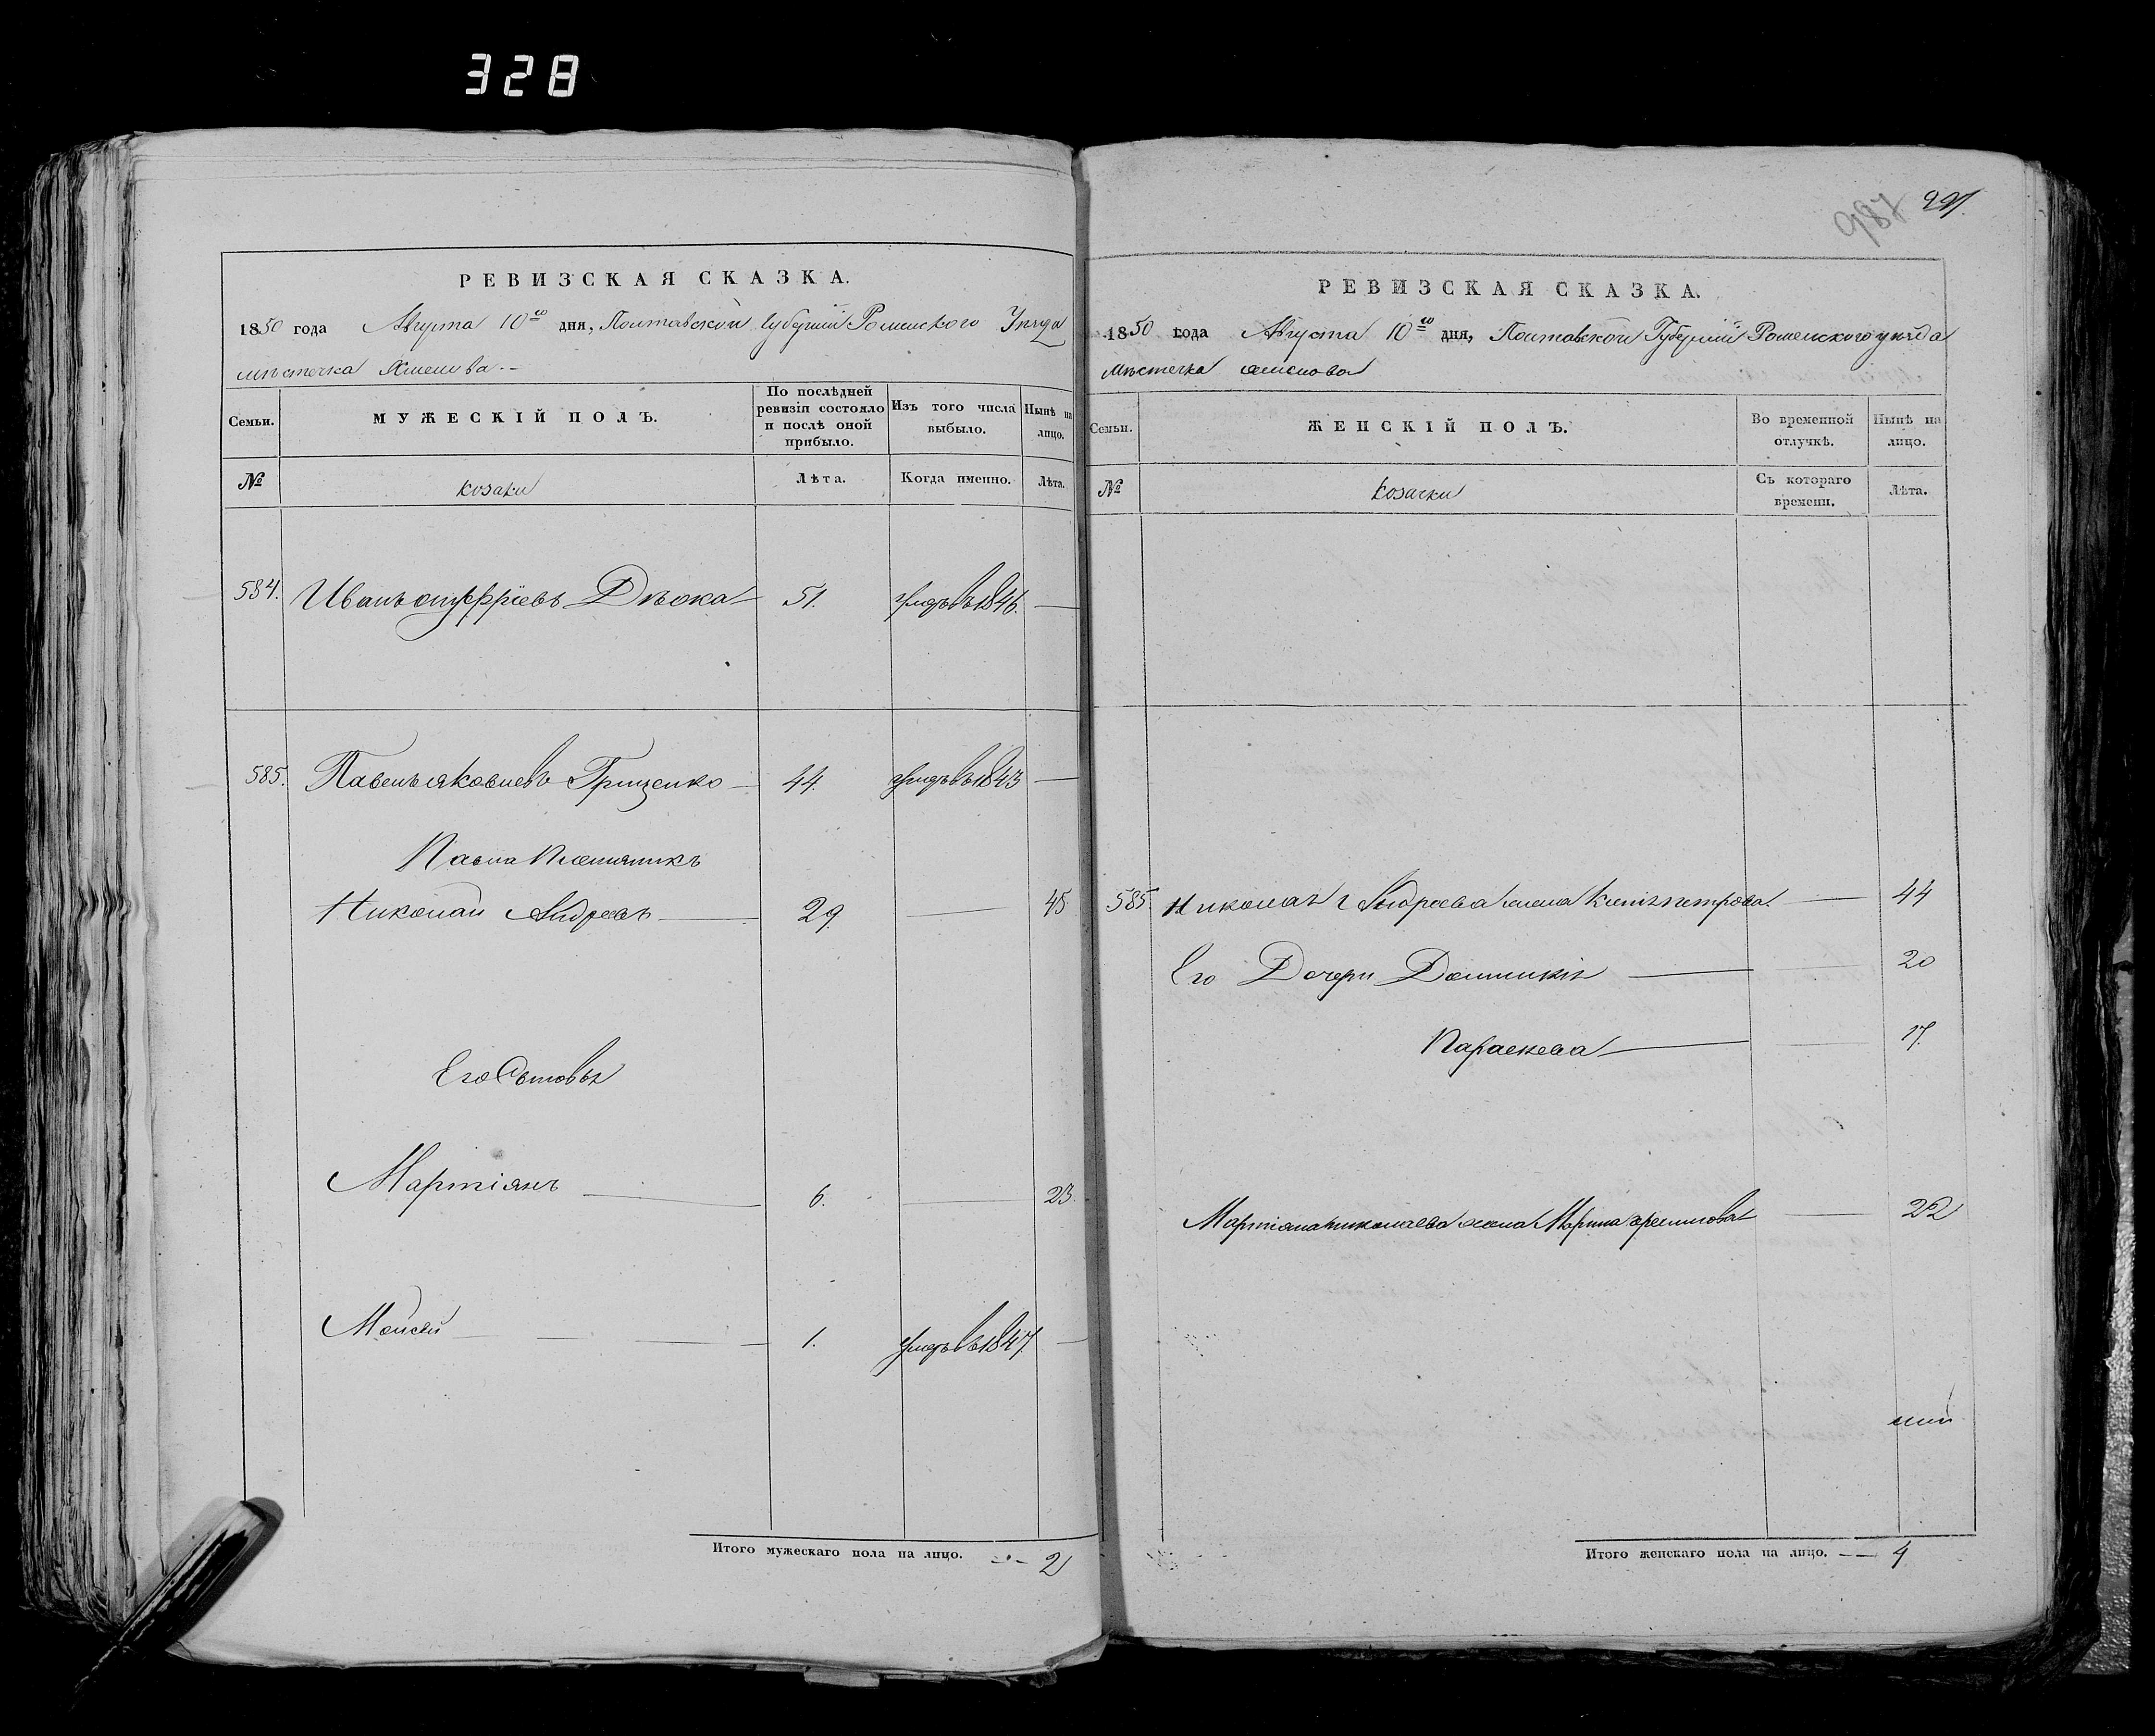 328
987 991.
РЕВИЗСКАЯ СКАЗКА.
1850 года Августа 10го дня, Полтавской Губерніи Роменского Уезда
мѣстечка Хмелива.
Семьи.
МУЖЕСКІЙ ПОЛЪ.
По послѣдней ревизіи состояло и послѣ оной прибыло.
Изъ того числа выбыло.
Нынѣ на лицо.
№
козаки
Лѣта.
Когда именно.
Лѣта.
584. Иванъ Онуффріевъ Дѣюка 51. умеръ въ 1846. —
585. Павелъ Яковлевъ Грищенко 44. умеръ въ 1843 —
Павла Племянникъ
Николай Андреевъ 29. — 45
Его Сыновья
Мартіянъ 6. — 23.
Мойсей 1. умеръ въ 1847. —
Итого мужескаго пола на лицо. — 2
РЕВИЗСКАЯ СКАЗКА.
1850 года Августа 10го дня, Полтавской Губерніи Роменского уезда
Мѣстечка Хмелова
Семьи.
ЖЕНСКІЙ ПОЛЪ.
Во временной отлучкѣ.
Нынѣ на лицо.
№
козачки
Съ котораго времени.
Лѣта.
585 Николая Андреева жена петрова. — 44
Его Дочери Домникія — 20
Параскева — 17.
Мартіяна николаева жена Марина — 22
Итого женскаго пола на лицо. — 4